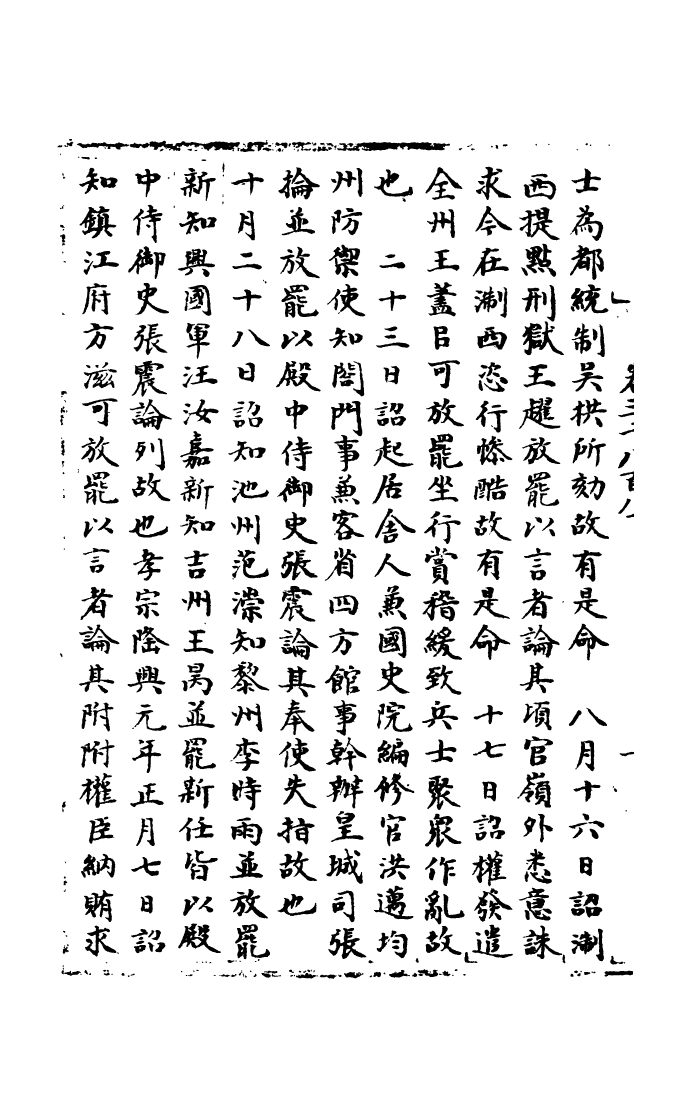 士為都統制吳栱所劾故有是命　八月十六日詔淛
西提點刑獄王趯放罷以言者論其頃官嶺外悉意誅
求今在淛西恣行慘酷故有是命　十七日詔權發遣
全州王蓋臣可放罷坐行賞稽緩致兵士聚衆作亂故
也　二十三日詔起居舍人兼國史院編修官洪邁均
州防禦使知閤門事兼客省四方館事幹辦皇城司張
掄並放罷以殿中侍御史張震論其奉使失指故也
十月二十八日詔知池州范漴知黎州李時雨並放罷
新知興國軍汪汝嘉新知吉州王昺並罷新任皆以殿
中侍御史張震論列故也孝宗隆興元年正月七日詔
知鎮江府方滋可放罷以言者論其附附權臣納賄求